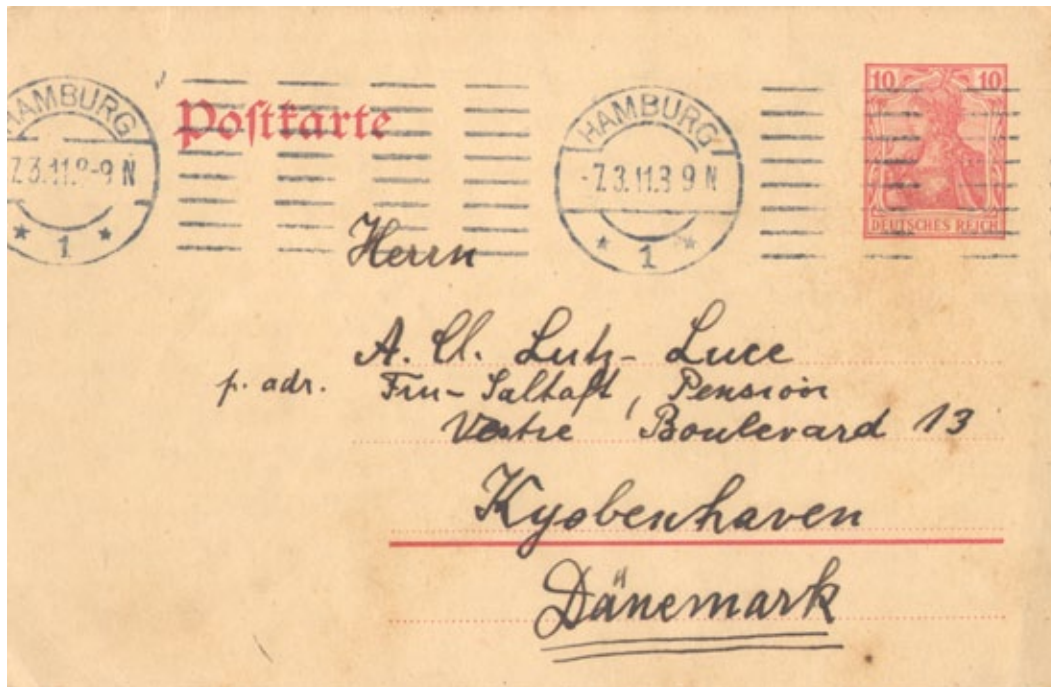 Postkarte
HAMBURG
7.3.11.8-9 N
* 1 *
HAMBURG
-7.3.11.8 9 N
* 1 *
10 10
DEUTSCHES REICH
Herrn
A. Cl. Lutz-Luce
p. adr. Fru-Saltoft, Pension
Vestre Boulevard 13
Kyobenhaven
Dänemark